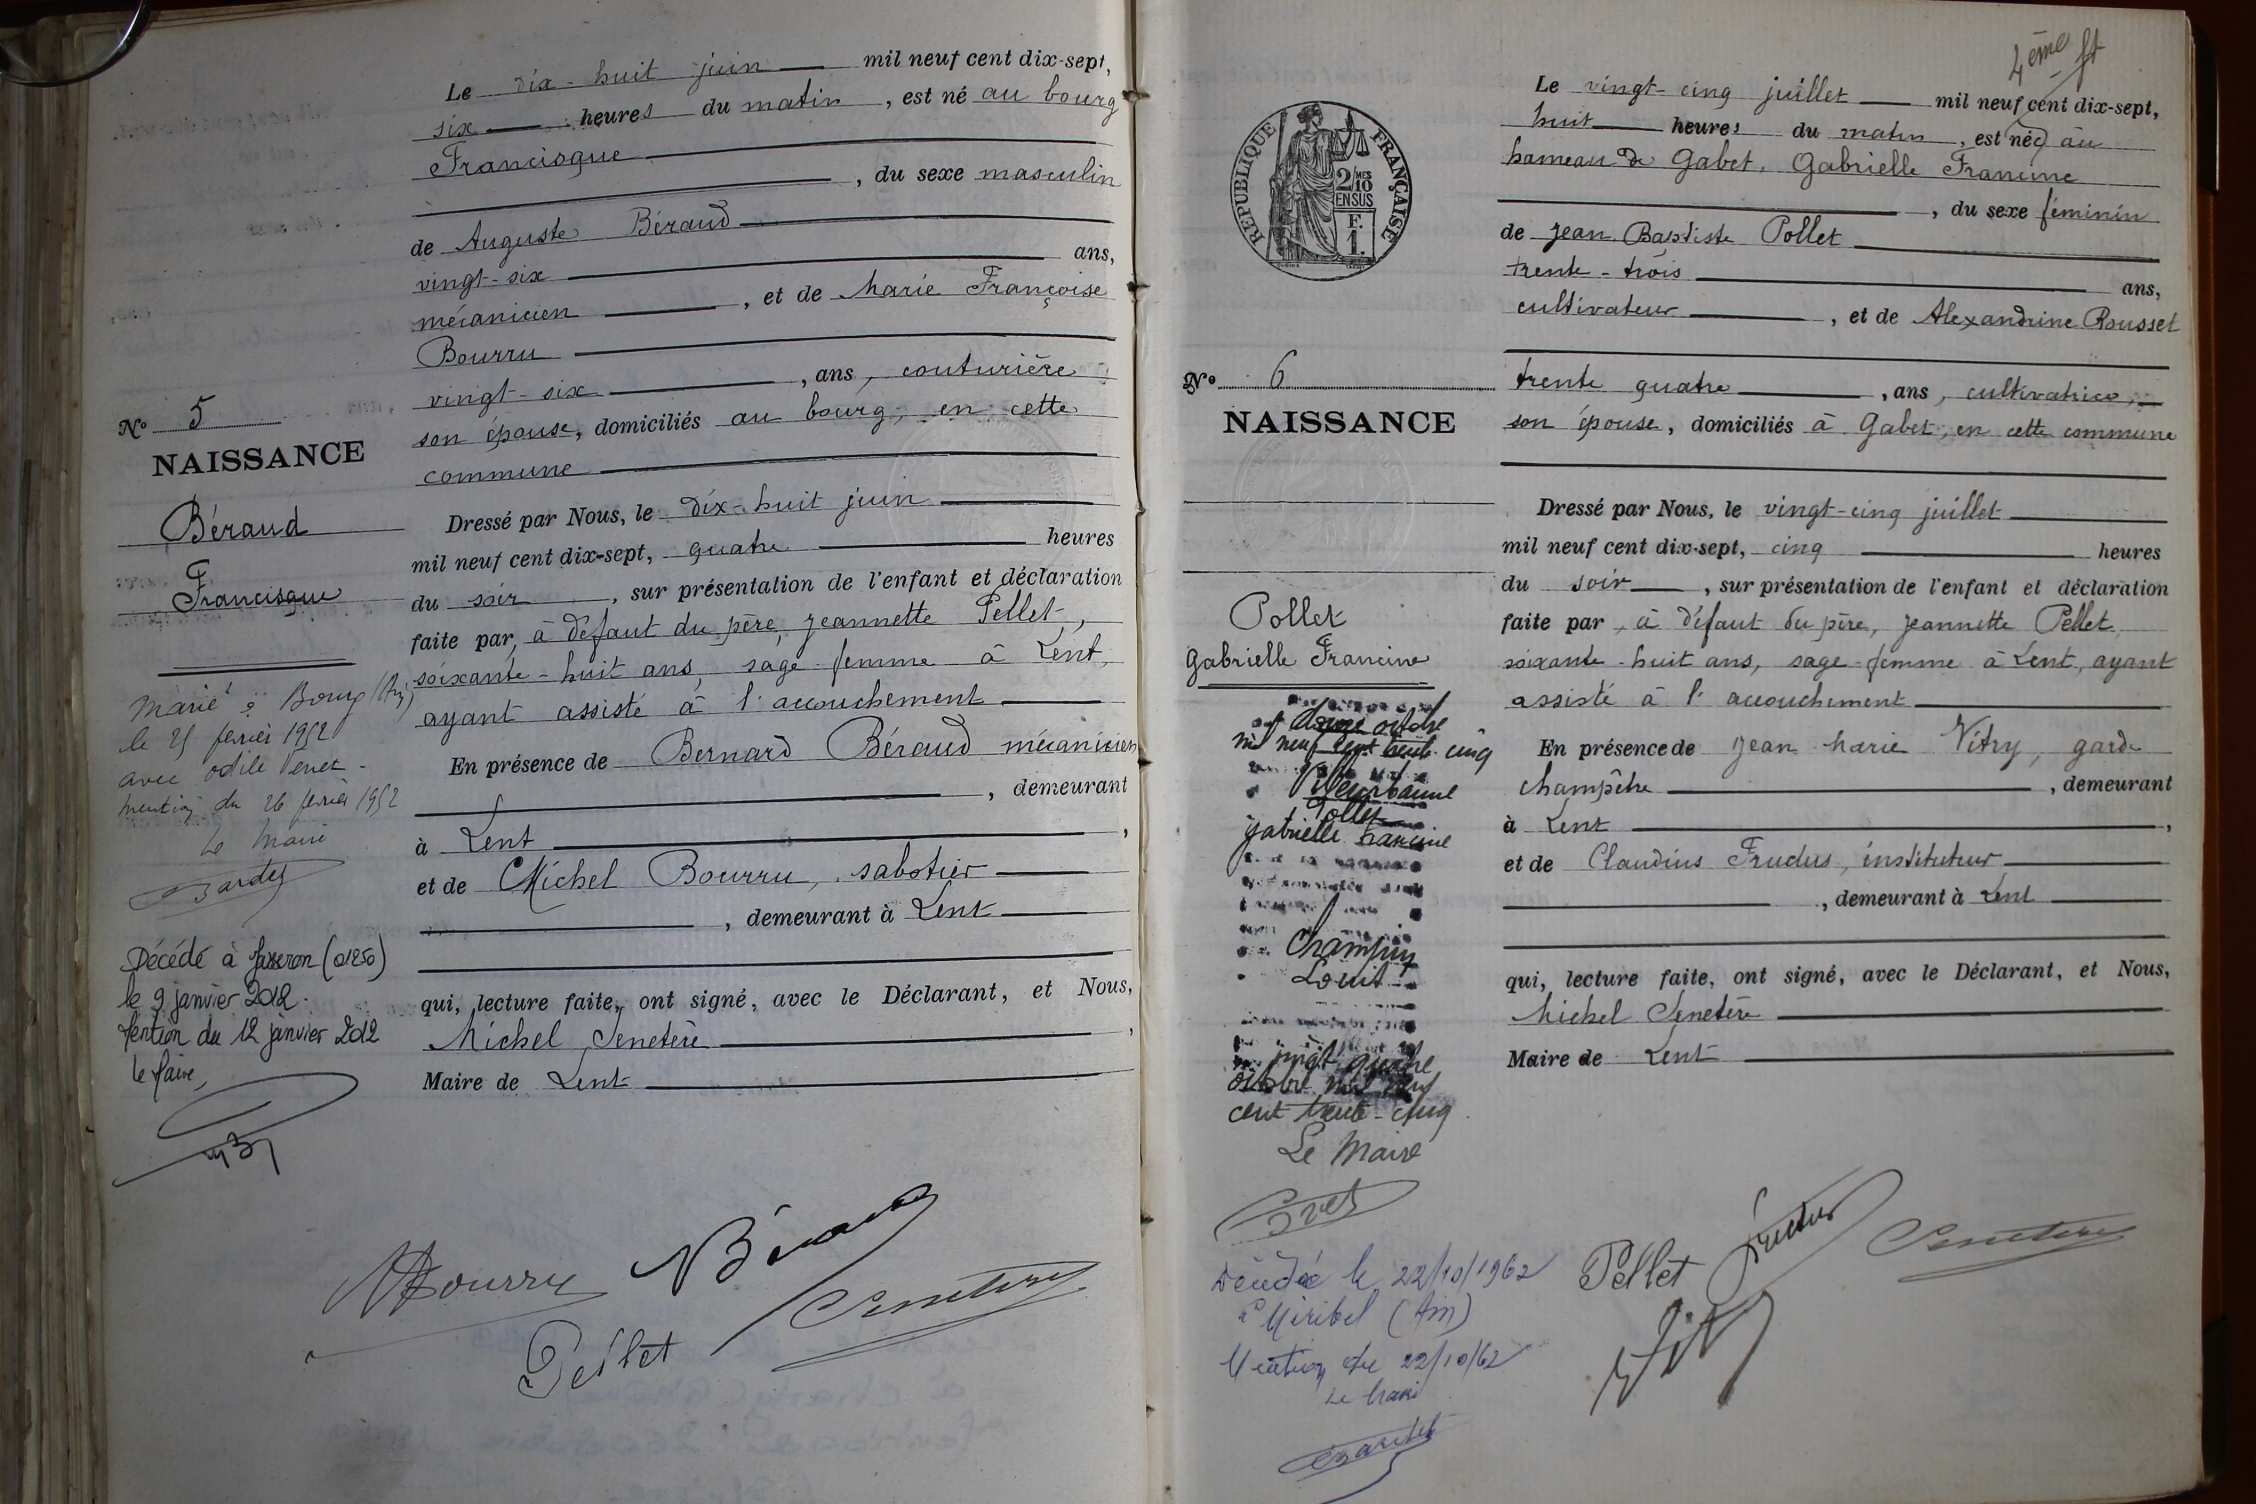 Le dix-huit juin mil neuf cent dix-sept,
six heures du matin, est né au bourg
Francisque
, du sexe masculin
de Auguste Béraud
vingt-six ans,
mécanicien, et de Marie Françoise
Bourru
vingt-six, ans, couturière
son épouse, domiciliés au bourg, en cette
commune
N° 5
NAISSANCE
Béraud
Francisque
Dressé par Nous, le dix-huit juin
mil neuf cent dix-sept, quatre heures
du soir, sur présentation de l'enfant et déclaration
faite par, à défaut du père, Jeannette Pellet,
soixante-huit ans, sage-femme à Lent,
ayant assisté à l'accouchement
En présence de Bernard Béraud mécanicien
, demeurant
à Lent,
et de Michel Bourru, sabotier
, demeurant à Lent
qui, lecture faite, ont signé, avec le Déclarant, et Nous,
Michel Senetère,
Maire de Lent
Marié à Bourg
le 25 février 1952
avec Odile
mention du 26 février 1952
Le Maire
Décédé à (01250)
le 9 janvier 2012.
Mention du 12 janvier 2012
le Maire,
Bourru Béraud
Senetère
Pellet
4ème ft
RÉPUBLIQUE FRANÇAISE
2/10
MES
EN SUS
F.
1.
Le vingt-cinq juillet mil neuf cent dix-sept,
huit heures du matin, est née au
hameau de Gabet, Gabrielle Francine
, du sexe féminin
de Jean Baptiste Pollet
trente-trois ans,
cultivateur, et de Alexandrine Rousset
trente quatre, ans, cultivatrice,
son épouse, domiciliés à Gabet, en cette commune
N° 6
NAISSANCE
Pollet
Gabrielle Francine
Dressé par Nous, le vingt-cinq juillet
mil neuf cent dix-sept, cinq heures
du soir, sur présentation de l'enfant et déclaration
faite par, à défaut du père, Jeannette Pellet
soixante-huit ans, sage-femme à Lent, ayant
assisté à l'accouchement
En présence de Jean Marie Vitry, garde
champêtre, demeurant
à Lent,
et de Claudius Frudus, instituteur
, demeurant à Lent
qui, lecture faite, ont signé, avec le Déclarant, et Nous,
Michel Senetère
Maire de Lent
octobre
mil neuf cent trente cinq
Villeurbanne
Pollet
Gabrielle Francine
Champin
Louis
vingt quatre
octobre mil neuf
cent trente-cinq
Le Maire
Décédée le 22/10/1962
à Miribel (Ain)
Mention du 22/10/62
Le Maire
Pellet
Senetère